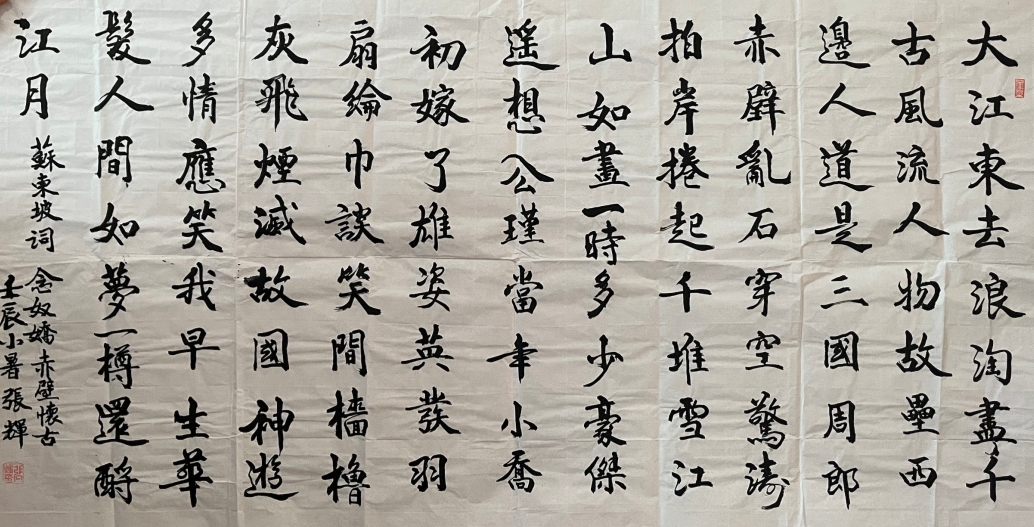 大江東去浪淘盡千
古風流人物故壘西
邊人道是三國周郎
赤壁亂石穿空驚濤
拍岸捲起千堆雪江
山如畫一時多少豪傑
遥想公瑾當年小喬
初嫁了雄姿英發羽
扇綸巾談笑間檣櫓
灰飛煙滅故國神遊
多情應笑我早生華
髮人間如夢一樽還酹
江月
蘇東坡詞
念奴嬌赤壁懷古
壬辰小暑張輝